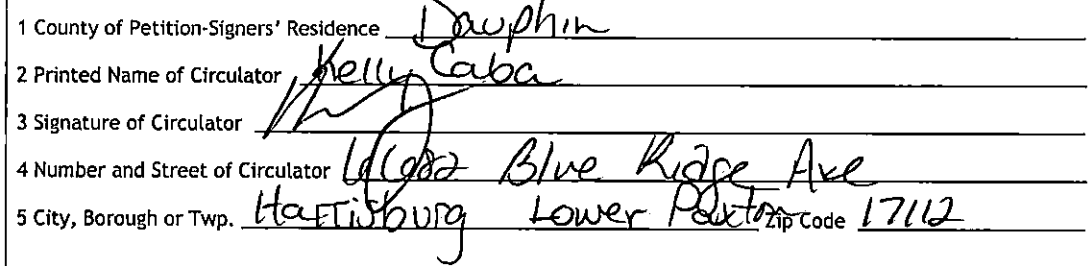 1 County of Petition-Signers' Residence Dauphin
2 Printed Name of Circulator Kelly Caba
3 Signature of Circulator
4 Number and Street of Circulator Blue Ridge Ave
5 City, Borough or Twp. Harrisburg Lower Paxton Zip Code 17112